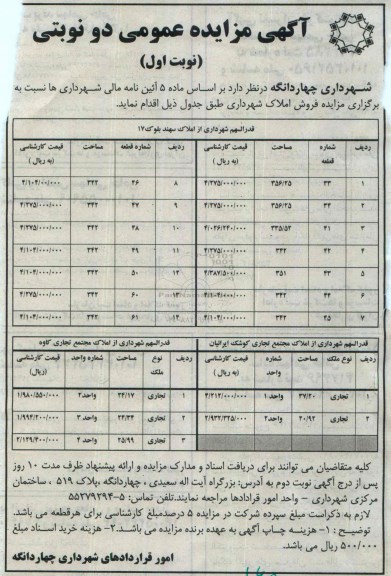 آگهی مزایده عمومی دو نوبتی
(نوبت اول)
شهرداری چهاردانگه درنظر دارد بر اساس ماده ۵ آئین نامه مالی شهرداری ها نسبت به
برگزاری مزایده فروش املاک شهرداری طبق جدول ذیل اقدام نماید.
قدرالسهم شهرداری از املاک سهند بلوک۱۷
ردیف شماره قطعه مساحت قیمت کارشناسی (به ریال) ردیف شماره قطعه مساحت قیمت کارشناسی (به ریال)
۱ ۳۳ ۳۵۶/۲۵ ۴/۲۷۵/۰۰۰/۰۰۰ ۸ ۴۶ ۳۴۲ ۴/۱۰۴/۰۰۰/۰۰۰
۲ ۳۴ ۳۵۶/۲۵ ۴/۲۷۵/۰۰۰/۰۰۰ ۹ ۴۷ ۳۴۲ ۴/۲۷۵/۰۰۰/۰۰۰
۳ ۴۱ ۳۳۵/۵۲ ۴/۰۲۶/۲۴۰/۰۰۰ ۱۰ ۴۸ ۳۴۲ ۴/۲۷۵/۰۰۰/۰۰۰
۴ ۴۲ ۳۴۲ ۴/۲۷۵/۰۰۰/۰۰۰ ۱۱ ۴۹ ۳۴۲ ۴/۱۰۴/۰۰۰/۰۰۰
۵ ۴۳ ۳۵۱ ۴/۳۸۷/۵۰۰/۰۰۰ ۱۲ ۵۰ ۳۴۲ ۴/۱۰۴/۰۰۰/۰۰۰
۶ ۳۴۲ ۴/۱۰۴/۰۰۰/۰۰۰ ۱۳ ۶۰ ۳۴۲ ۴/۲۷۵/۰۰۰/۰۰۰
۷ ۴۵ ۳۴۲ ۴/۱۰۴/۰۰۰/۰۰۰ ۱۴ ۶۱ ۳۴۲ ۴/۱۰۴/۰۰۰/۰۰۰
قدرالسهم شهرداری از املاک مجتمع تجاری کوشک ایرانیان
ردیف نوع ملک مساحت شماره واحد قیمت کارشناسی (به ریال)
۱ تجاری ۳۷/۲۰ واحد ۱ ۴/۲۱۲/۰۰۰/۰۰۰
۲ تجاری ۲۰/۹۲ واحد۲ ۲/۹۳۲/۳۲۵/۰۰۰
قدرالسهم شهرداری از املاک مجتمع تجاری کاوه
ردیف نوع ملک مساحت شماره واحد قیمت کارشناسی (ریال)
۱ تجاری ۲۴/۱۷ واحد۲ ۱/۹۸۰/۵۵۰/۰۰۰
۲ تجاری ۲۴/۳۴ واحد ۳ ۱/۹۹۴/۲۰۰/۰۰۰
۳ تجاری ۲۵/۹۹ واحد ۴ ۲/۱۲۹/۴۰۰/۰۰۰
کلیه متقاضیان می توانند برای دریافت اسناد و مدارک مزایده و ارائه پیشنهاد ظرف مدت ۱۰ روز
پس از درج آگهی نوبت دوم به آدرس: بزرگراه آیت اله سعیدی ، چهاردانگه ،پلاک ۵۱۹ ، ساختمان
مرکزی شهرداری - واحد امور قراردادها مراجعه نمایند.تلفن تماس: ۵-۵۵۲۷۹۲۹۴
لازم به ذکراست مبلغ سپرده شرکت در مزایده ۵ درصدمبلغ کارشناسی برای هرقطعه می باشد.
توضیح : ۱- هزینه چاپ آگهی به عهده برنده مزایده می باشد.۲- هزینه خرید اسناد مبلغ
۵۰۰/۰۰۰ ریال می باشد.
امور قراردادهای شهرداری چهاردانگه